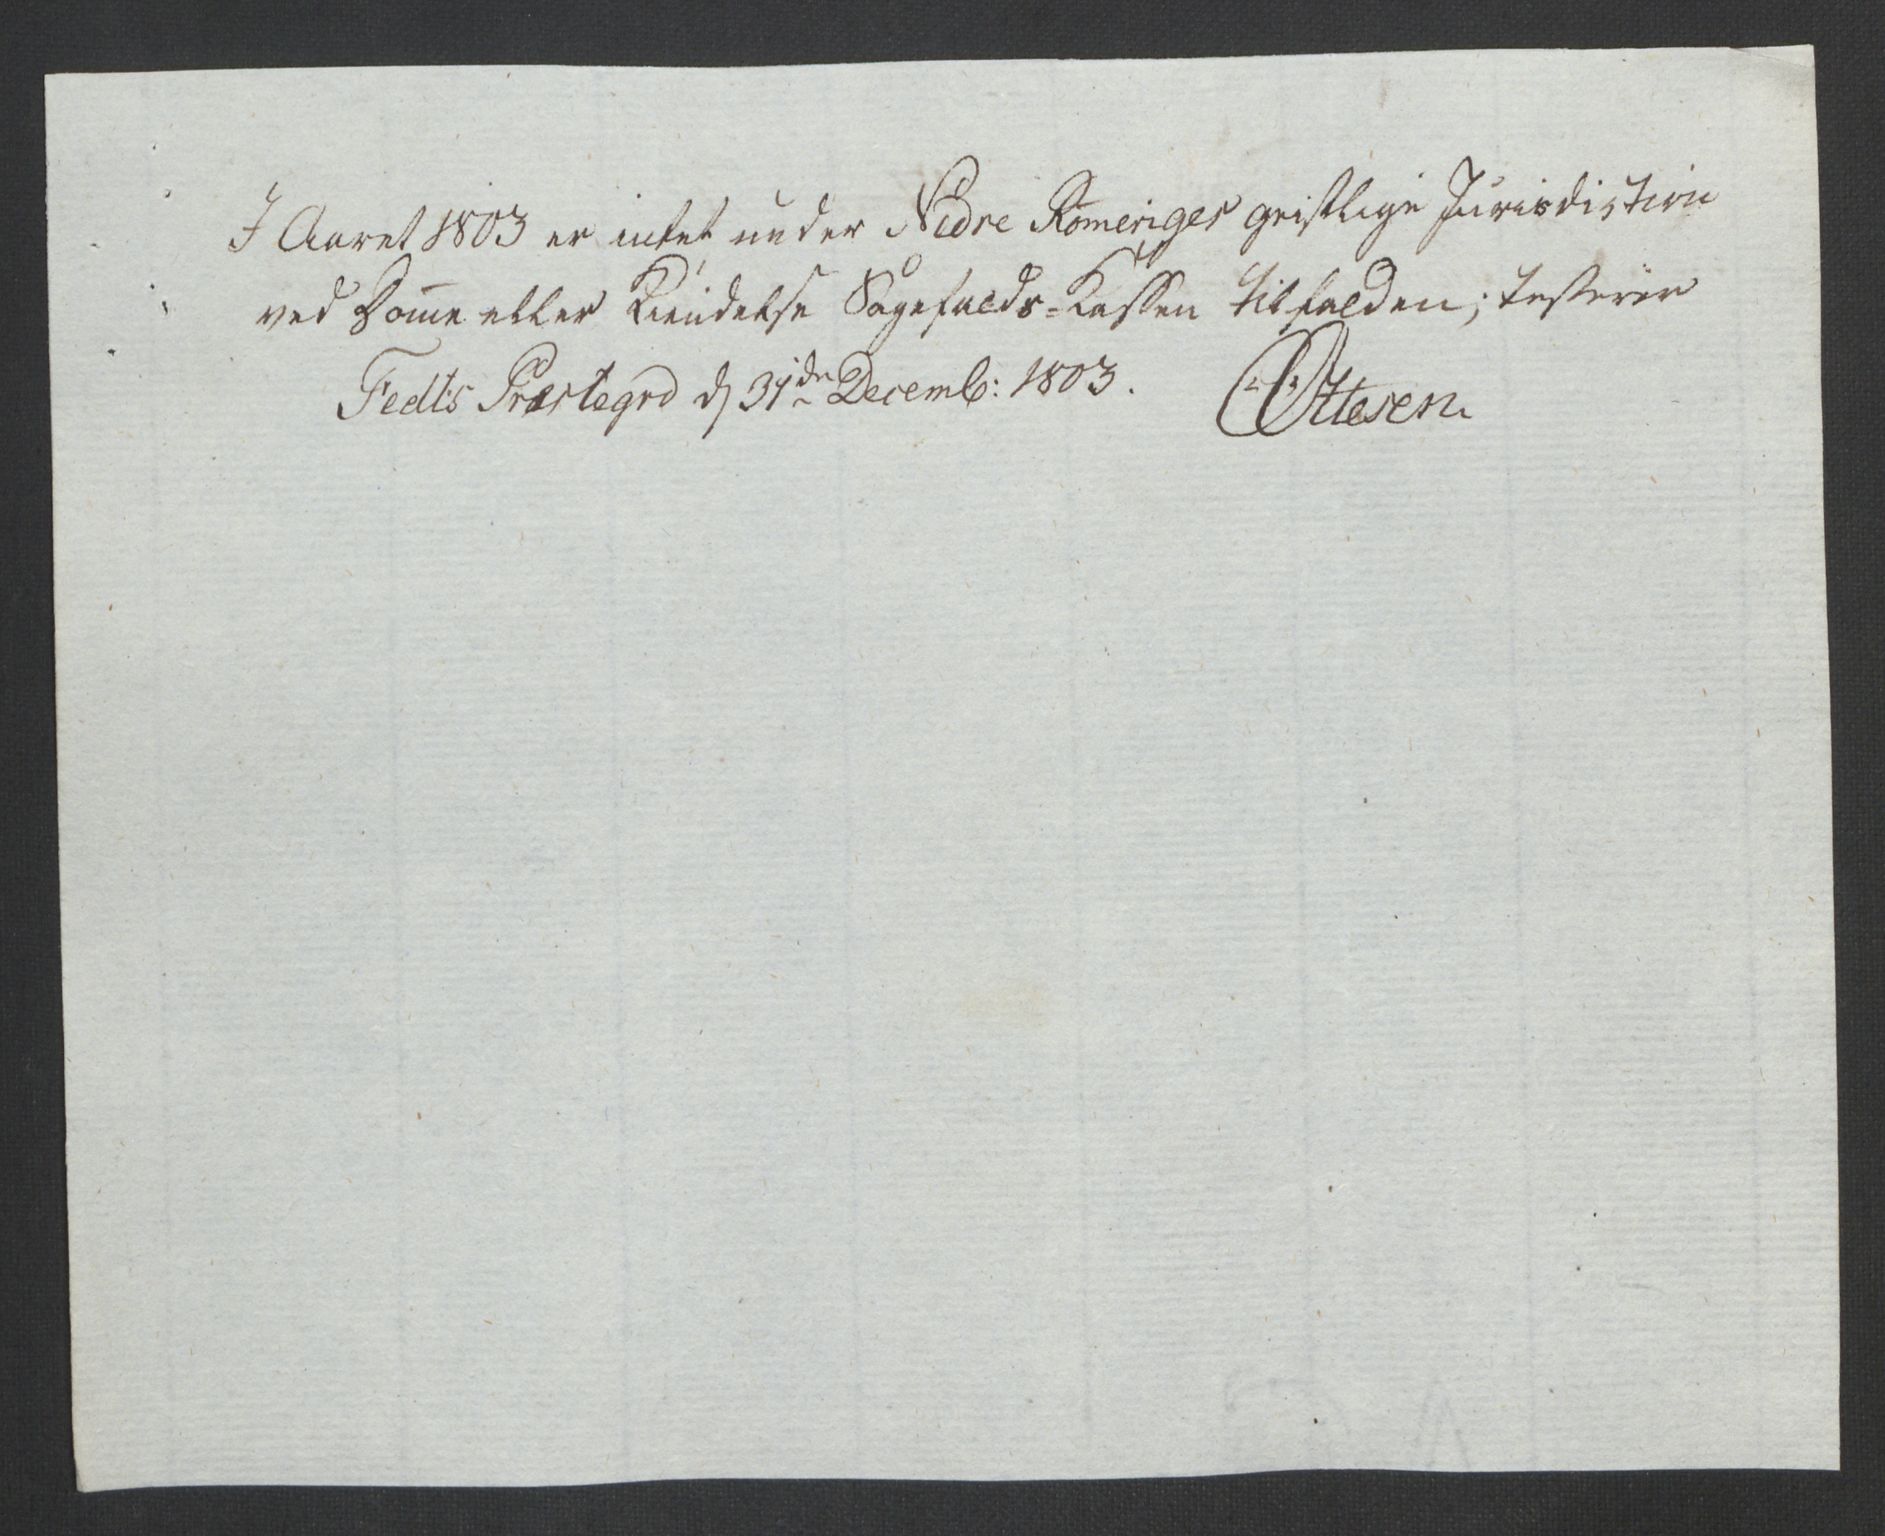 I Aaret 1803 er intet under Nedre Romeriges geistlige Jurisdiction
ved Domme eller Kiendelse Sagefalds-Kassen tilfalden; testerer
Fedts Præstegrd d 31de Decemb: 1803. Ottesen.